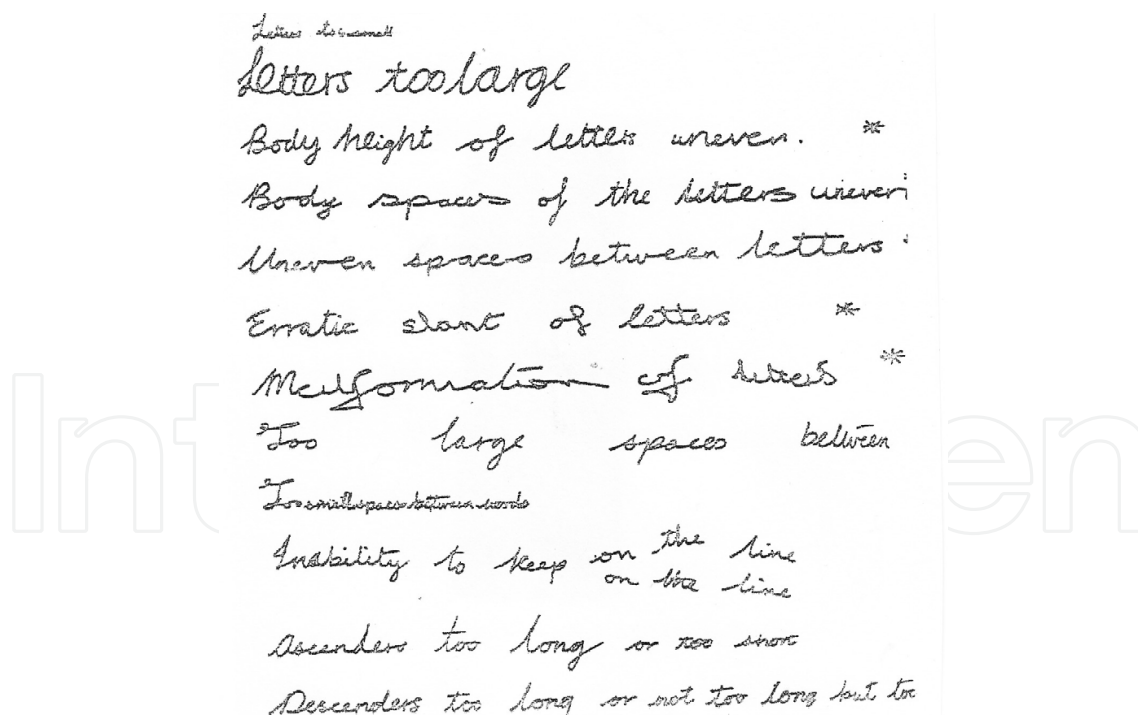 Letters too small
Letters too large
Body height of letters uneven. *
Body spaces of the letters uneven
Uneven spaces between letters.
Erratic slant of letters *
Malformation of letters *
Too large spaces between
Too small spaces between words
Inability to keep on the line
on the line
Ascenders too long or too short
Descenders too long or not too long but too